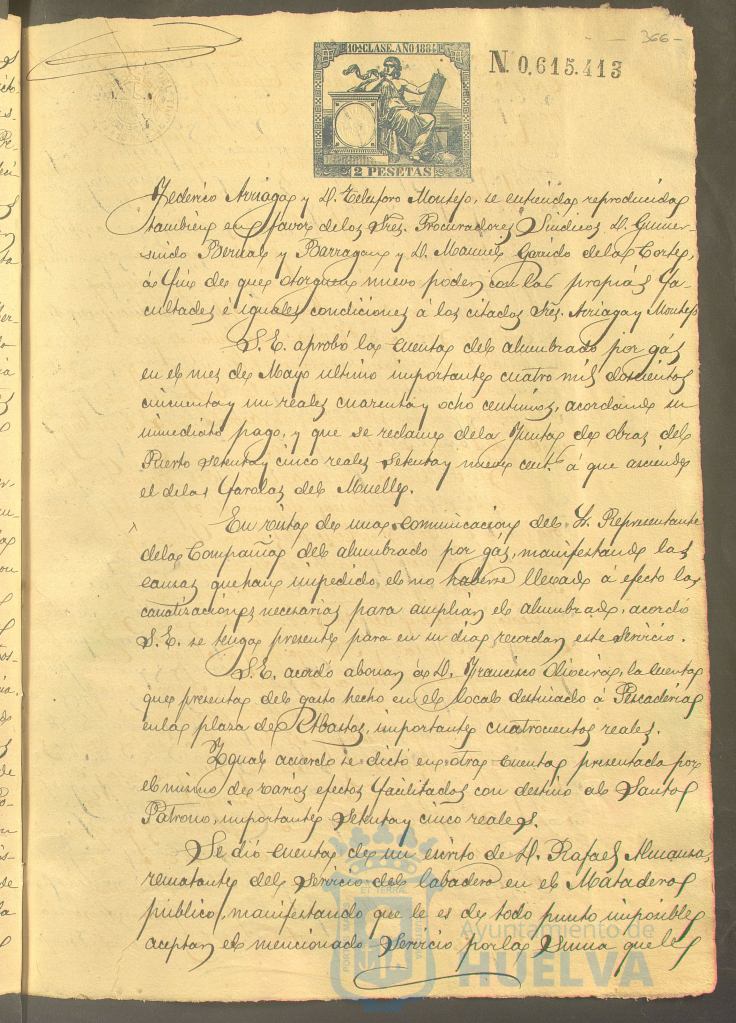 366
10ª CLASE. AÑO 1884
Nº 0,615.413
2 PESETAS
Federico Arriaga y D. Telesforo Montejo, se entienda reproducida
tambien en favor de los Sres. Procuradores Sindicos D. Gumer-
sindo Bernal y Barragan y D. Manuel Garrido de la Corte,
á fin de que otorguen nuevo poder con las propias fa-
cultades e iguales condiciones á los citados Sres. Arriaga y Montejo
S. E. aprobó la cuenta del alumbrado por gas
en el mes de Mayo ultimo importante cuatro mil doscientos
cincuenta y un reales cuarenta y ocho centimos, acordando su
inmediato pago, y que se reclame de la Junta de obras del
Puerto setenta y cinco reales setenta y nueve cent. á que asciende
el de las farolas del Muelle.
En vista de una comunicacion del Sr. Representante
de la Compañia del alumbrado por gas, manifestando las
causas que han impedido, el no haberse llevado á efecto las
canalizaciones necesarias para ampliar el alumbrado, acordó
S. E. se tenga presente para en su dia recordar este servicio.
S. E. acordó abonar á D. Francisco Oliveira, la cuenta
que presenta del gasto hecho en el local destinado á Pescaderia
en la plaza de Abastos, importante cuatrocientos reales.
Igual acuerdo se dictó en otra cuenta presentada por
el mismo de varios efectos facilitados con destino al Santo
Patrono, importante setenta y cinco reales.
Se dió cuenta de un escrito de D. Rafael
rematante del servicio del labadero en el Matadero
público, manifestando que le es de todo punto imposible
aceptar el mencionado servicio por la suma que le
Ayuntamiento de
HUELVA